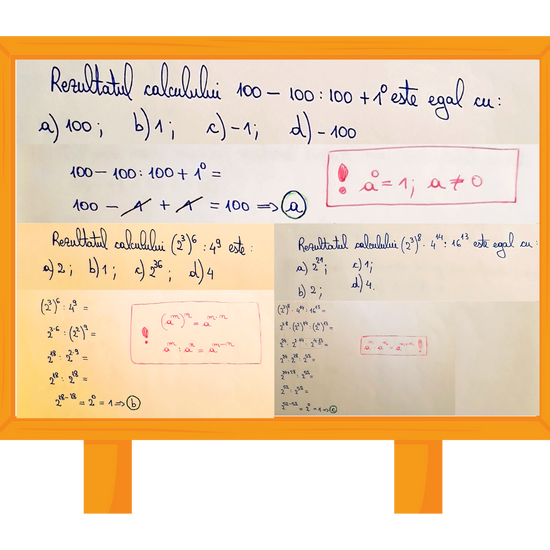 Rezultatul calculului 100 - 100 : 100 + 1⁰ este egal cu:
a) 100; b) 1; c) -1; d) -100
100 - 100 : 100 + 1⁰ =
100 - 1 + 1 = 100 => a
! a⁰ = 1; a ≠ 0
Rezultatul calculului (2³)⁶ : 4⁹ este:
a) 2; b) 1; c) 2³⁶; d) 4
(2³)⁶ : 4⁹ =
2³·⁶ : (2²)⁹ =
2¹⁸ : 2²·⁹ =
2¹⁸ : 2¹⁸ =
2¹⁸⁻¹⁸ = 2⁰ = 1 => b
(aᵐ)ⁿ = aᵐ·ⁿ
! aᵐ : aⁿ = aᵐ⁻ⁿ
Rezultatul calculului (2³)⁸ · 4¹⁴ : 16¹³ este egal cu:
a) 2²¹; c) 1;
b) 2; d) 4.
(2³)⁸ · 4¹⁴ : 16¹³ =
2³·⁸ · (2²)¹⁴ : (2⁴)¹³ =
2²⁴ · 2²·¹⁴ : 2⁴·¹³ =
2²⁴ · 2²⁸ : 2⁵² =
2²⁴⁺²⁸ : 2⁵² =
2⁵² : 2⁵² =
2⁵²⁻⁵² = 2⁰ = 1 => c